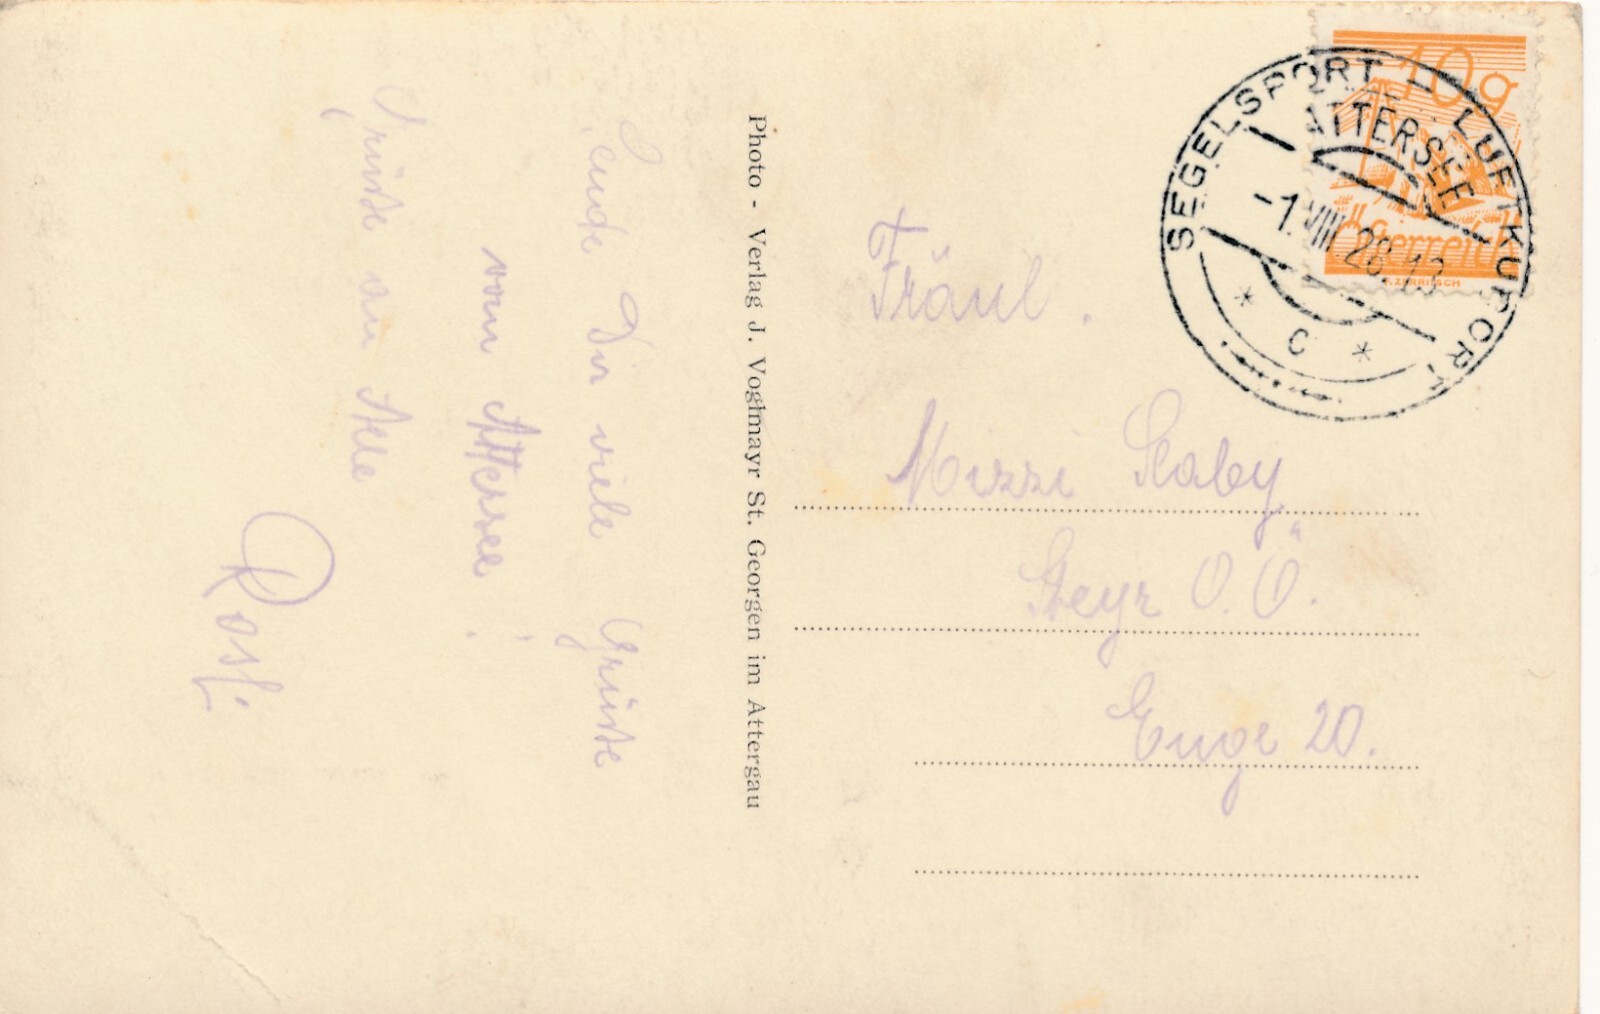 Sende Dir viele Grüße
vom Attersee!
Grüße an Alle
Rosl.
Photo - Verlag J. Voglmayr St. Georgen im Attergau
10g
Österreich
SEGELSPORT - LUFTKURORT
ATTERSEE
-1.VIII.28.13
* C *
Fräul.
Mizzi Slaby
Steyr O.Ö.
Enge 20.